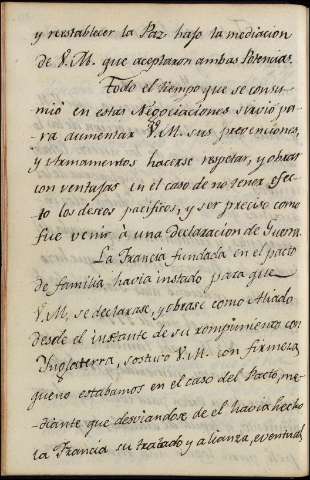 y reestablecer la Paz bajo la mediacion
de V.M. que aceptaron ambas Potencias.
Todo el tiempo que se consu-
mió en estas Negociaciones sirvió pa-
ra aumentar V.M. sus prevenciones,
y armamentos hacerse respetar, y obrar
con ventajas en el caso de no tener efec-
to los deseos pacificos, y ser preciso como
fue venir à una Declaracion de Guerra.
La Francia fundada en el pacto
de familia havia instado para que
V.M. se declarase, y obrase como Aliado
desde el instante de su rompimiento con
Ynglaterra, sostuvo V.M. con firmeza
que no estabamos en el caso del Pacto, me-
diante que desviandose de el havia hecho
la Francia su tratado y alianza, eventual